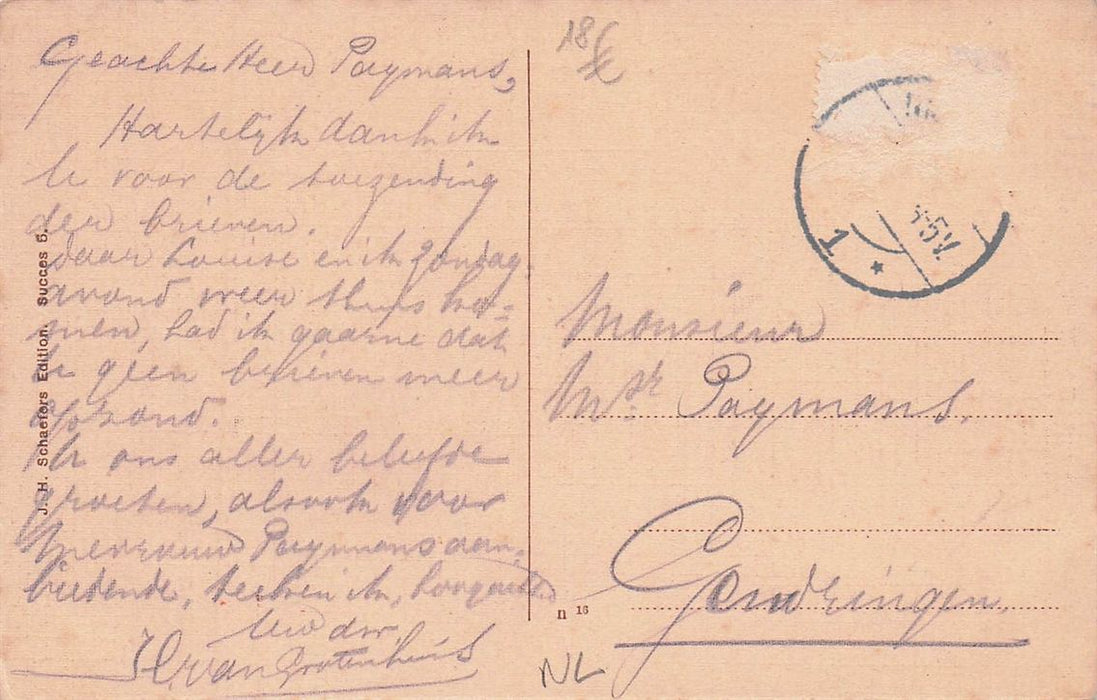 Geachte Heer Paymans,
Hartelijk dank ik
U voor de toezending
der brieven.
Daar Louise en ik Zondag
avond weer thuis ko-
men, had ik gaarne dat
U geen brieven meer
opzond.
U ons aller beleefde
groeten, alsook voor
Mevrouw Paymans aan-
biedende, teeken ik, hoogachtend
Uw dw.
H. van Grotenhuis
J. H. Schaefers Edition. Succes 5.
n 16
NL
18
1
5V.
Monsieur
Mr Paymans.
Gendringen